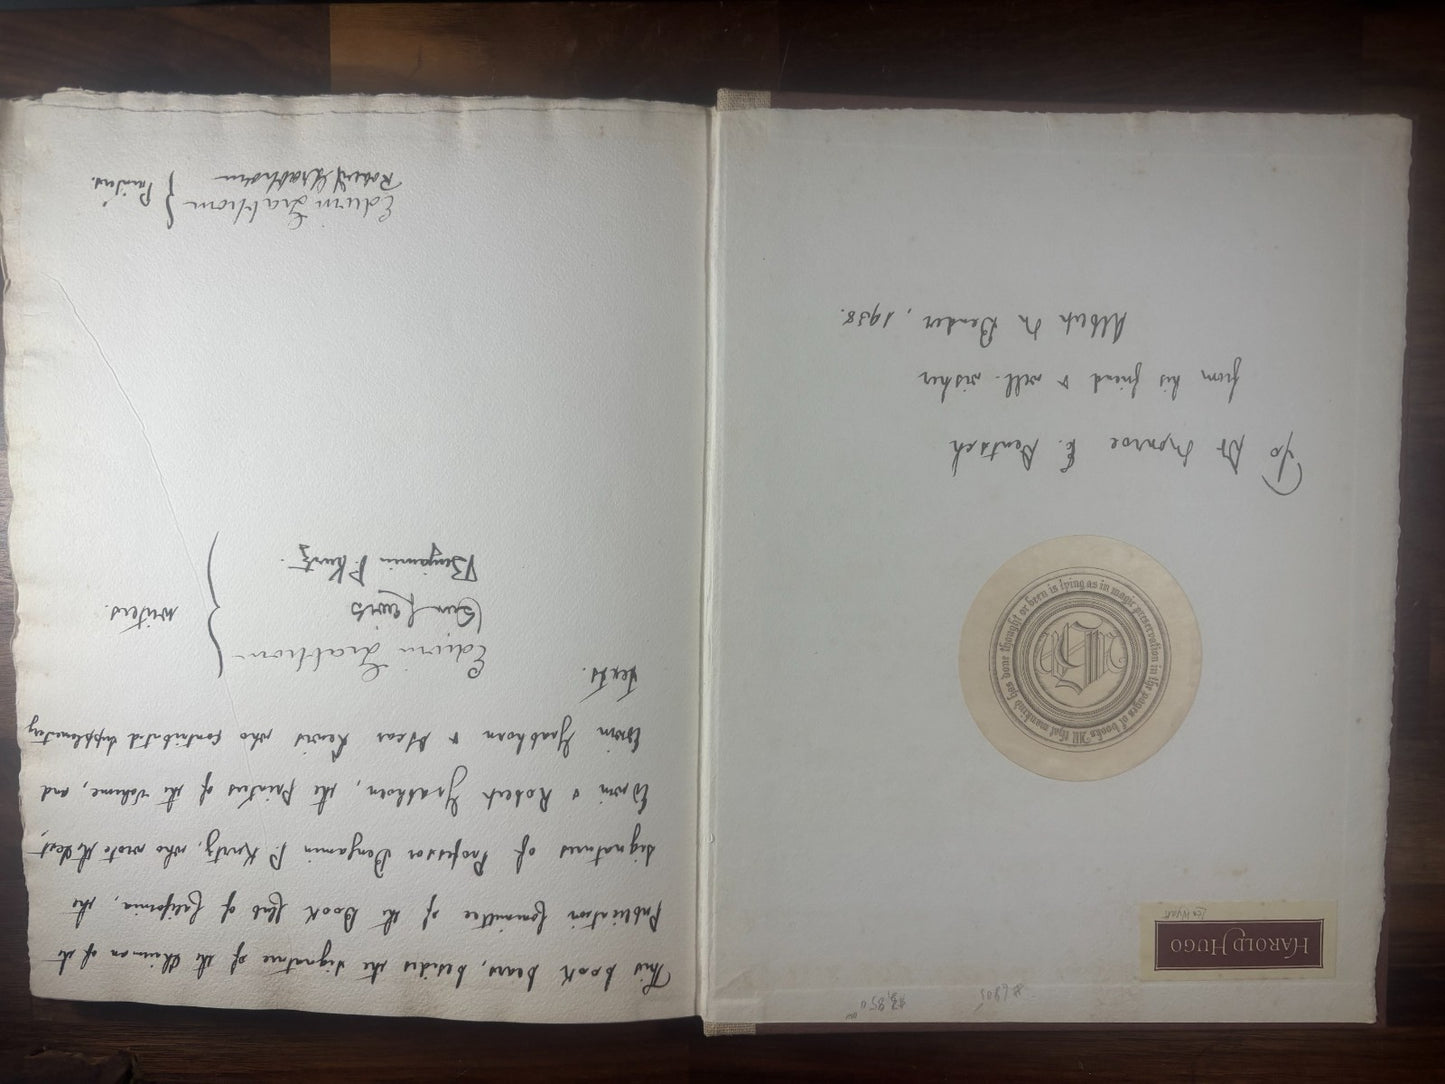 HAROLD HUGO
Leo Wyatt
#6805
$3,850
All that mankind has done thought or been is lying as in magic preservation in the pages of books
To Dr Monroe E. Deutsch
from his friend & well-wisher
Albert M Bender, 1938.
This book bears, besides the signature of the Chairman of the
Publication Committee of the Book Club of California, the
signatures of Professor Benjamin P. Kurtz, who wrote the text,
Edwin & Robert Grabhorn, the Printers of the volume, and
Edwin Grabhorn & Oscar Lewis who contributed supplementary
texts.
Edwin Grabhorn
Oscar Lewis
Benjamin P. Kurtz.
writers.
Edwin Grabhorn
Robert Grabhorn
Printers.